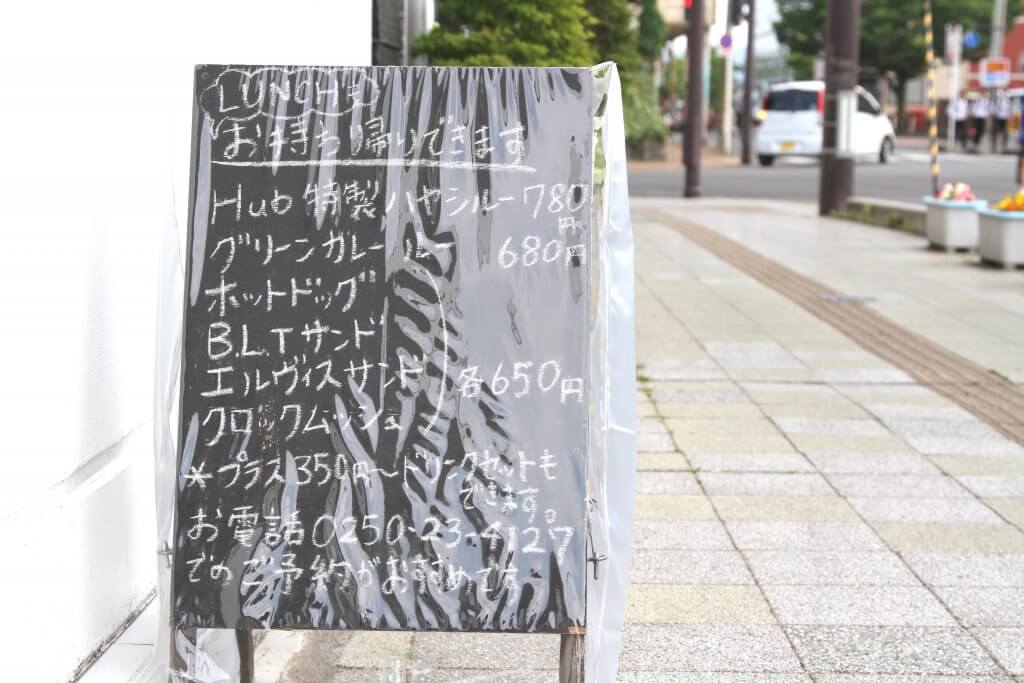 LUNCHも
お持ち帰りできます
Hub 特製ハヤシルー 780円
グリーンカレールー 680円
ホットドッグ
B.L.Tサンド
エルヴィスサンド 各650円
クロックムッシュ
*プラス350円〜ドリンクセットも
できます。
お電話0250-23-4127
でのご予約がおすすめです